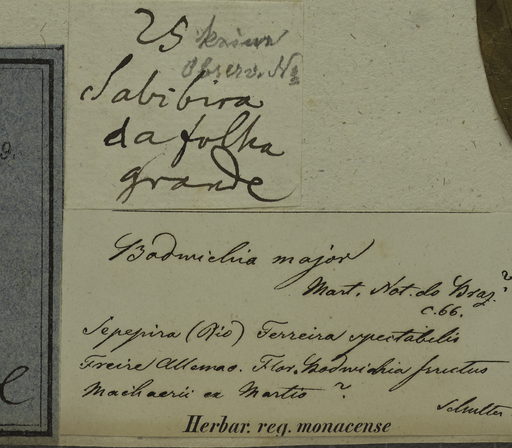 25 keine
Observ. No
Sabibira
da folha
grande
Bodwichia major
Mart. Not. do Braz. ?
c. 66.
Sepepira (Rio) Ferreira spectabilis
Freire Allemao. Flor. Bodwichia fructus
Machaerii ex Martio ?
Schulter
Herbar. reg. monacense
9.